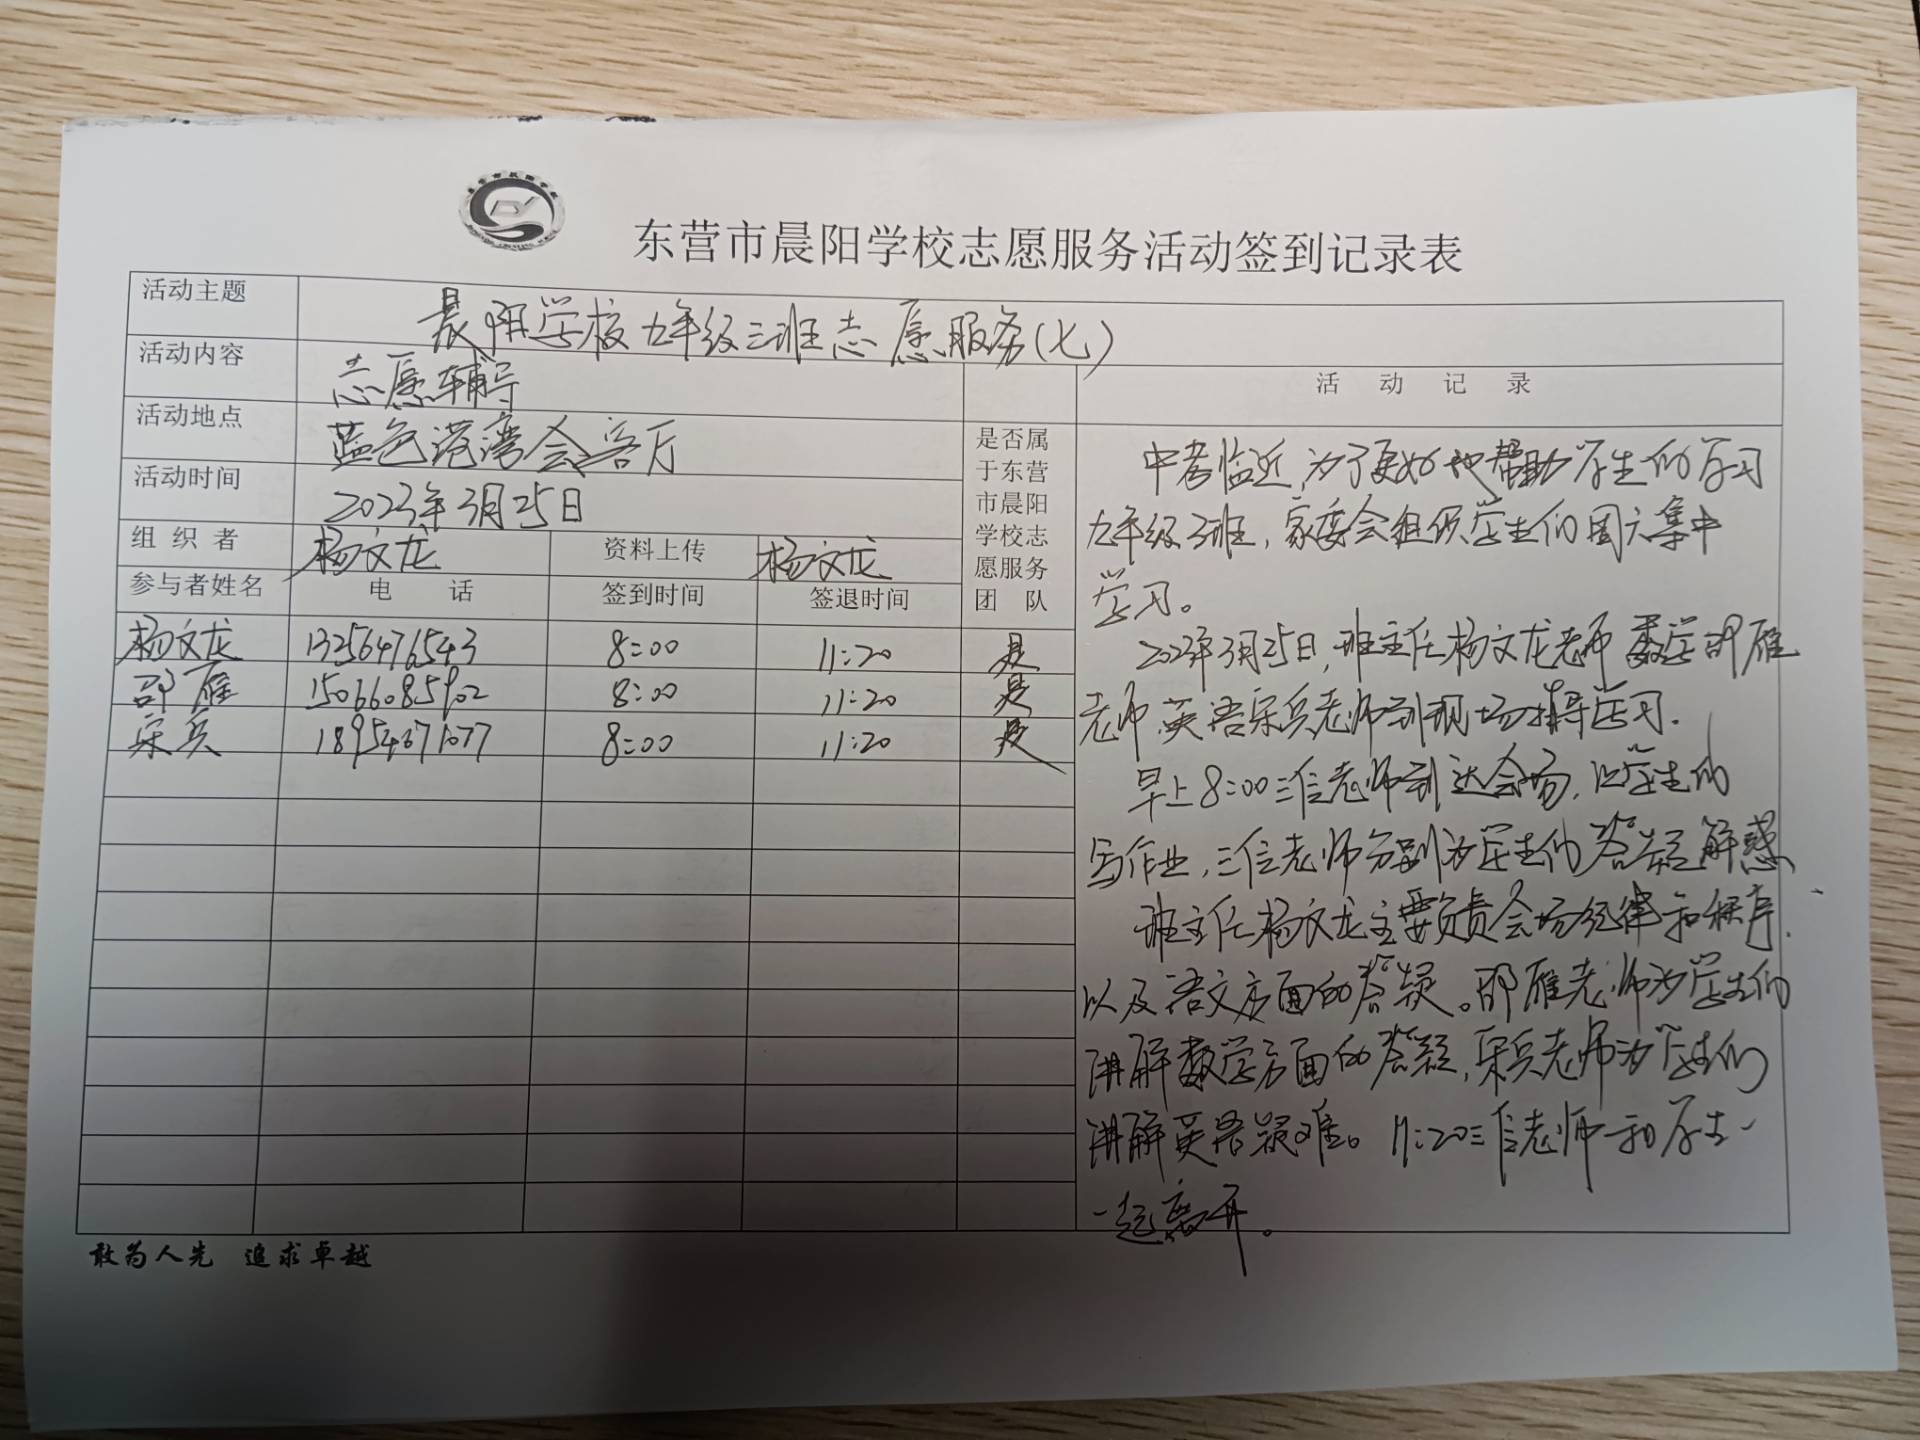 东营市晨阳学校志愿服务活动签到记录表
活动主题 晨阳学校九年级三班志愿服务(七)
活动内容 志愿辅导
活动地点 蓝色港湾会客厅
活动时间 2023年3月25日
组 织 者 杨文龙 资料上传 杨文龙
是否属
于东营
市晨阳
学校志
愿服务
团 队
参与者姓名 电 话 签到时间 签退时间
杨文龙 13256476543 8:00 11:20 是
邵雁 15066085902 8:00 11:20 是
宋兵 18954671077 8:00 11:20 是
活 动 记 录
中考临近,为了更好地帮助学生们学习
九年级3班,家委会组织学生们周六集中
学习。
2023年3月25日,班主任杨文龙老师 数学邵雁
老师 英语宋兵老师到现场指导学习.
早上8:00三位老师到达会场,让学生们
写作业,三位老师分别为学生们答疑解惑
班主任杨文龙主要负责会场纪律和秩序.
以及语文方面的答疑。邵雁老师为学生们
讲解数学方面的答疑,宋兵老师为学生们
讲解英语疑难。11:20三位老师和学生
一起离开。
敢为人先 追求卓越